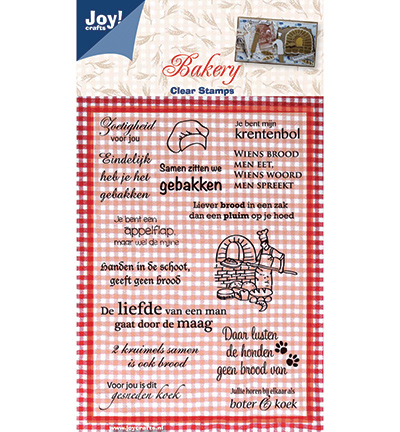 Joy!
crafts
Bakery
Clear Stamps
Zoetigheid
voor jou
Je bent mijn
krentenbol
Eindelijk
heb je het
gebakken
Samen zitten we
gebakken
Wiens brood
men eet,
Wiens woord
men spreekt
Liever brood in een zak
dan een pluim op je hoed
Je bent een
appelflap,
maar wel de mijne
Handen in de schoot,
geeft geen brood
De liefde van een man
gaat door de maag
2 kruimels samen
is ook brood
Daar lusten
de honden
geen brood van
Voor jou is dit
gesneden koek
Jullie horen bij elkaar als
boter & koek
www.joycrafts.nl